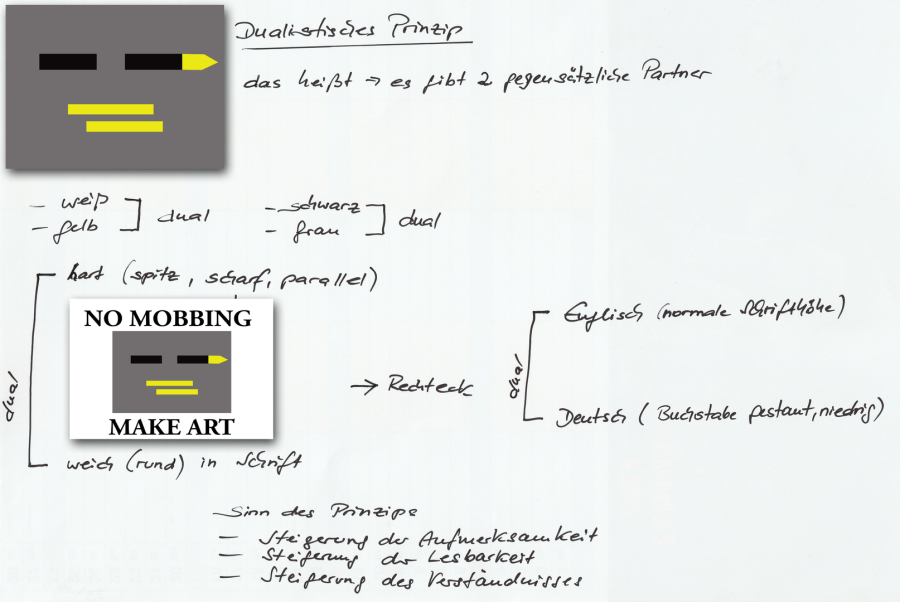 Dualistisches Prinzip
das heißt → es gibt 2 gegensätzliche Partner
– weiß
– gelb
dual
– schwarz
– grau
dual
hart (spitz, scharf, parallel)
NO MOBBING
MAKE ART
dual
weich (rund) in Schrift
→ Rechteck
dual
Englisch (normale Schrifthöhe)
Deutsch (Buchstabe gestaut, niedrig)
Sinn des Prinzips
– Steigerung der Aufmerksamkeit
– Steigerung der Lesbarkeit
– Steigerung des Verständnisses